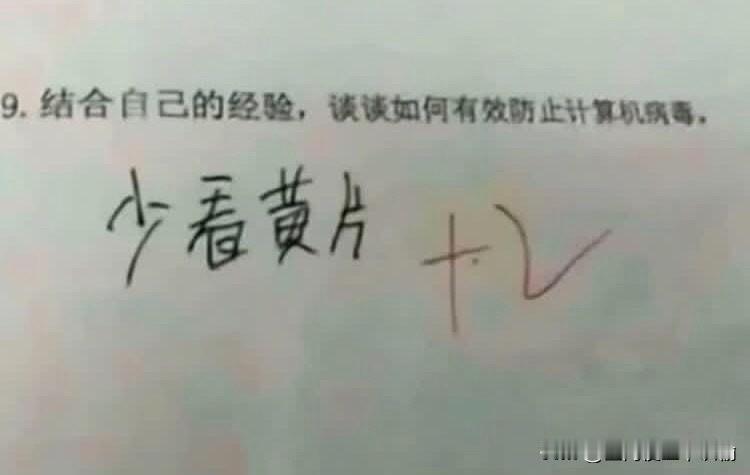 9. 结合自己的经验，谈谈如何有效防止计算机病毒。
少看黄片 +2